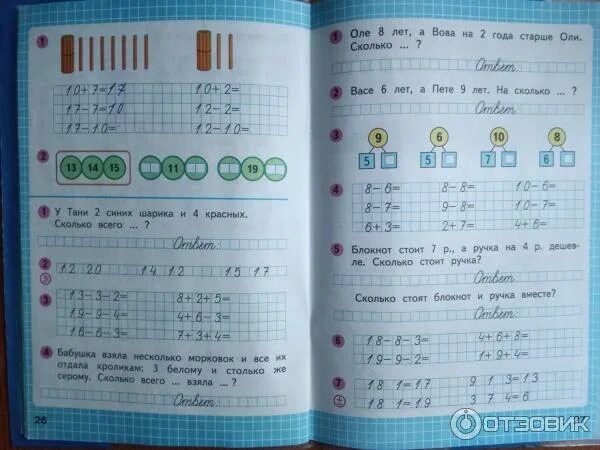 1
10+7=17 10+2=
17-7=10 12-2=
17-10= 12-10=
2
13 14 15 11 19
1 У Тани 2 синих шарика и 4 красных.
Сколько всего ... ?
Ответ:
2 12 20 14 12 15 17
3 13-3-2= 8+2+5=
19-9-4= 4+6-3=
16-6-3= 7+3+4=
4 Бабушка взяла несколько морковок и все их
отдала кроликам: 3 белому и столько же
серому. Сколько всего ... взяла ... ?
Ответ:
26
1 Оле 8 лет, а Вова на 2 года старше Оли.
Сколько ... ?
Ответ:
2 Васе 6 лет, а Пете 9 лет. На сколько ... ?
Ответ:
3 9 6 10 8
5 5 7 6
4 8-6= 8-8= 10-6=
8-7= 9-8= 10-7=
6+3= 2+7= 4+6=
5 Блокнот стоит 7 р., а ручка на 4 р. дешев-
ле. Сколько стоит ручка?
Ответ:
Сколько стоят блокнот и ручка вместе?
Ответ:
6 18-8-3= 4+6+8=
19-9-2= 1+9+4=
7 18 1=17 9 1 3=13
± 18 1=19 3 7 4=6
ОТЗОВИК